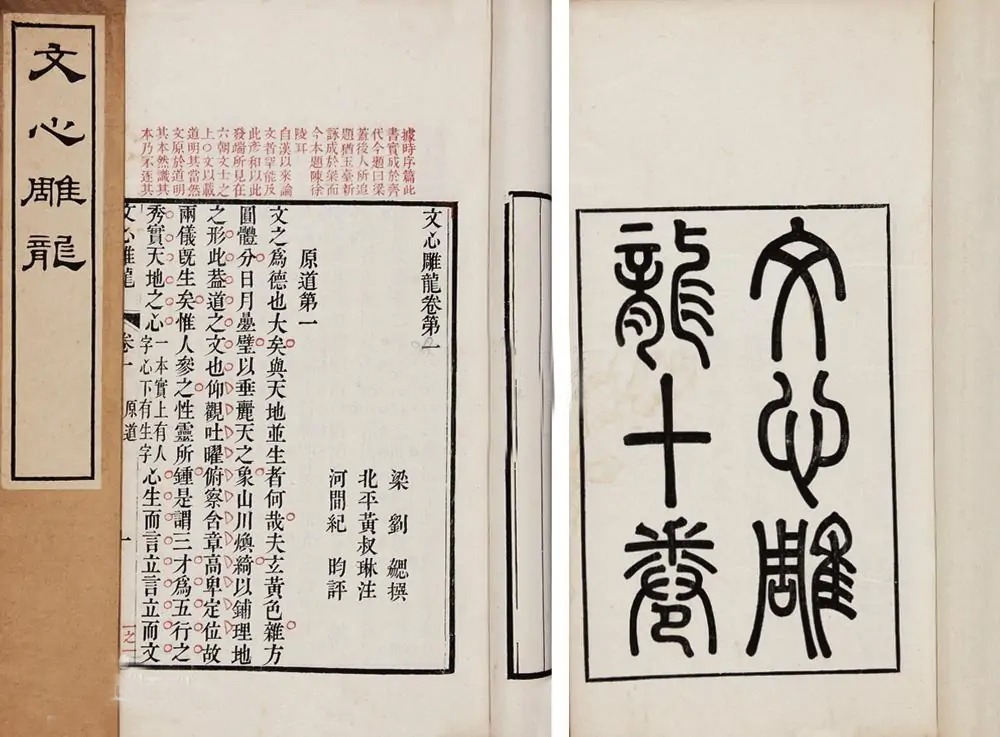 文心雕龍
據時序篇此
書實成於齊
代今題曰梁
蓋後人所追
題猶玉臺新
詠成於梁而
今本題陳徐
陵耳
自漢以來論
文者罕能及
此彥和以此
發端所見在
六朝文士之
上○文以載
道明其當然
文原於道明
其本然識其
本乃不逐其
文心雕龍卷第一
梁 劉 勰撰
北平黃叔琳注
河間紀 昀評
原道第一
文之爲德也大矣與天地並生者何哉夫玄黃色雜方
圓體分日月疊璧以垂麗天之象山川煥綺以鋪理地
之形此蓋道之文也仰觀吐曜俯察含章高卑定位故
兩儀既生矣惟人參之性靈所鍾是謂三才爲五行之
秀實天地之心一本實上有人字心下有生字心生而言立言立而文
文心雕龍 卷一 原道 一
文心雕
龍十卷